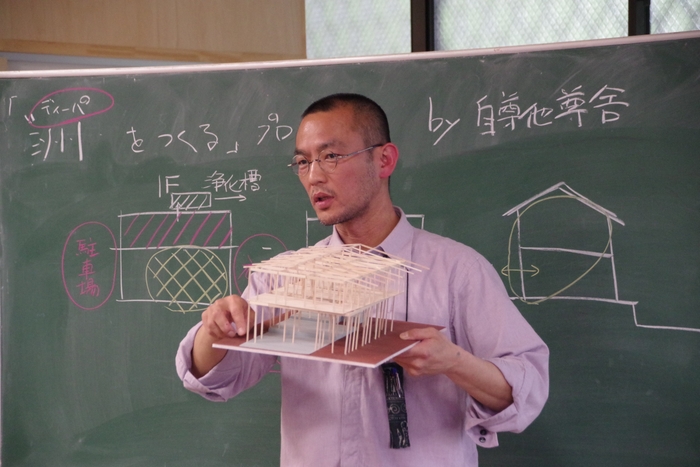 ディーパ
「洲 をつくる」プロ by 自尊他尊舎
1F 浄化槽
駐車場